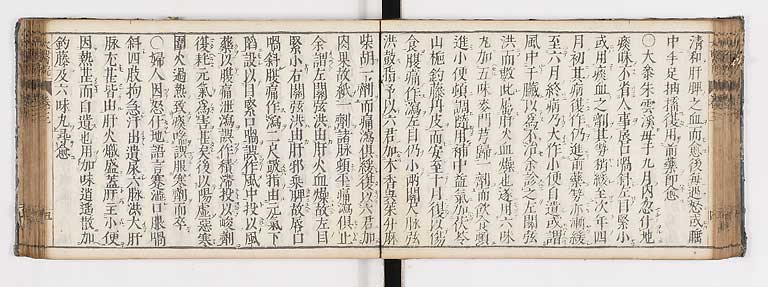 清和肝脾之血而愈後每遇怒或睡
中手足抽搐復用前藥即愈
〇大參朱雲溪母于九月內忽仆地
痰昧不省人事唇口喎斜左目緊小
或用痰血之劑其勢稍緩至次年四
月初其病復作仍進前藥勢亦漸緩
至六月終病乃大作小便自遺或謂
風中于臟以為不治余診之左關弦
洪而數此屬肝火血燥也遂用六味
丸加五味麥門芎歸一劑而飲食頓
進小便頓調隨用補中益氣加茯苓
山梔鈎藤丹皮而安至十月復以傷
食腹痛作瀉左目仍小兩關尺脉弦
洪鼓指予以六君加木香吳茱升麻
柴胡一劑而痛瀉俱緩復以六君加
肉果故紙一劑諸脉頓平痛瀉俱止
余謂左關弦洪由肝火血燥故左目
緊小右關弦洪由肝邪乘脾故唇口
喎斜腹痛作瀉二尺鼓指由元氣下
陷設以目緊口喎誤作風中投以風
藥以腹痛泄瀉誤作積滯投以峻劑
復耗元氣為害甚矣後以陽虛惡寒
圍火過熱致痰喘誤服寒劑而卒
〇婦人因怒仆地語言蹇澀口眼喎
斜四肢拘急汗出遺尿六脉洪大肝
脉尤甚皆由肝火熾盛蓋肝主小便
因熱甚而自遺也用加味逍遙散加
鈎藤及六味丸尋愈